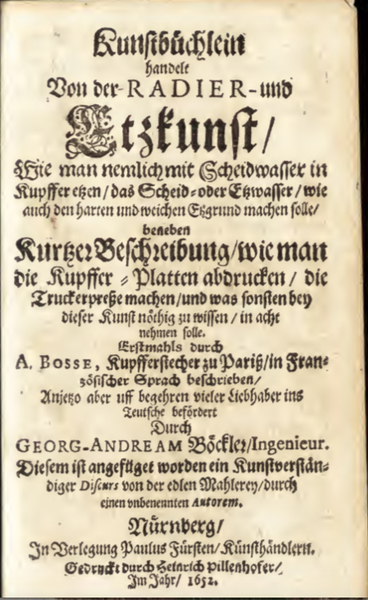 Kunstbüchlein
handelt
Von der-RADIER-und
Etzkunst/
Wie man nemlich mit Scheidwasser in
Kupffer etzen/das Scheid-oder Etzwasser/wie
auch den harten und weichen Etzgrund machen solle/
beneben
Kurtzer Beschreibung/wie man
die Kupffer-Platten abdrucken/die
Truckerpreße machen/und was sonsten bey
dieser Kunst nöthig zu wissen/in acht
nehmen solle.
Erstmahls durch
A. BOSSE, Kupfferstecher zu Pariß/in Fran-
zösischer Sprach beschrieben/
Anjetzo aber uff begehren vieler Liebhaber ins
Teutsche befördert
Durch
GEORG-ANDREAM Böckler/Ingenieur.
Diesem ist angefüget worden ein Kunstverstän-
diger Discurs von der edlen Mahlerey/durch
einen unbenennten Autorem.
Nürnberg/
In Verlegung Paulus Fürsten/Kunsthändlern.
Gedruckt durch Heinrich Pillenhofer/
Im Jahr/1652.